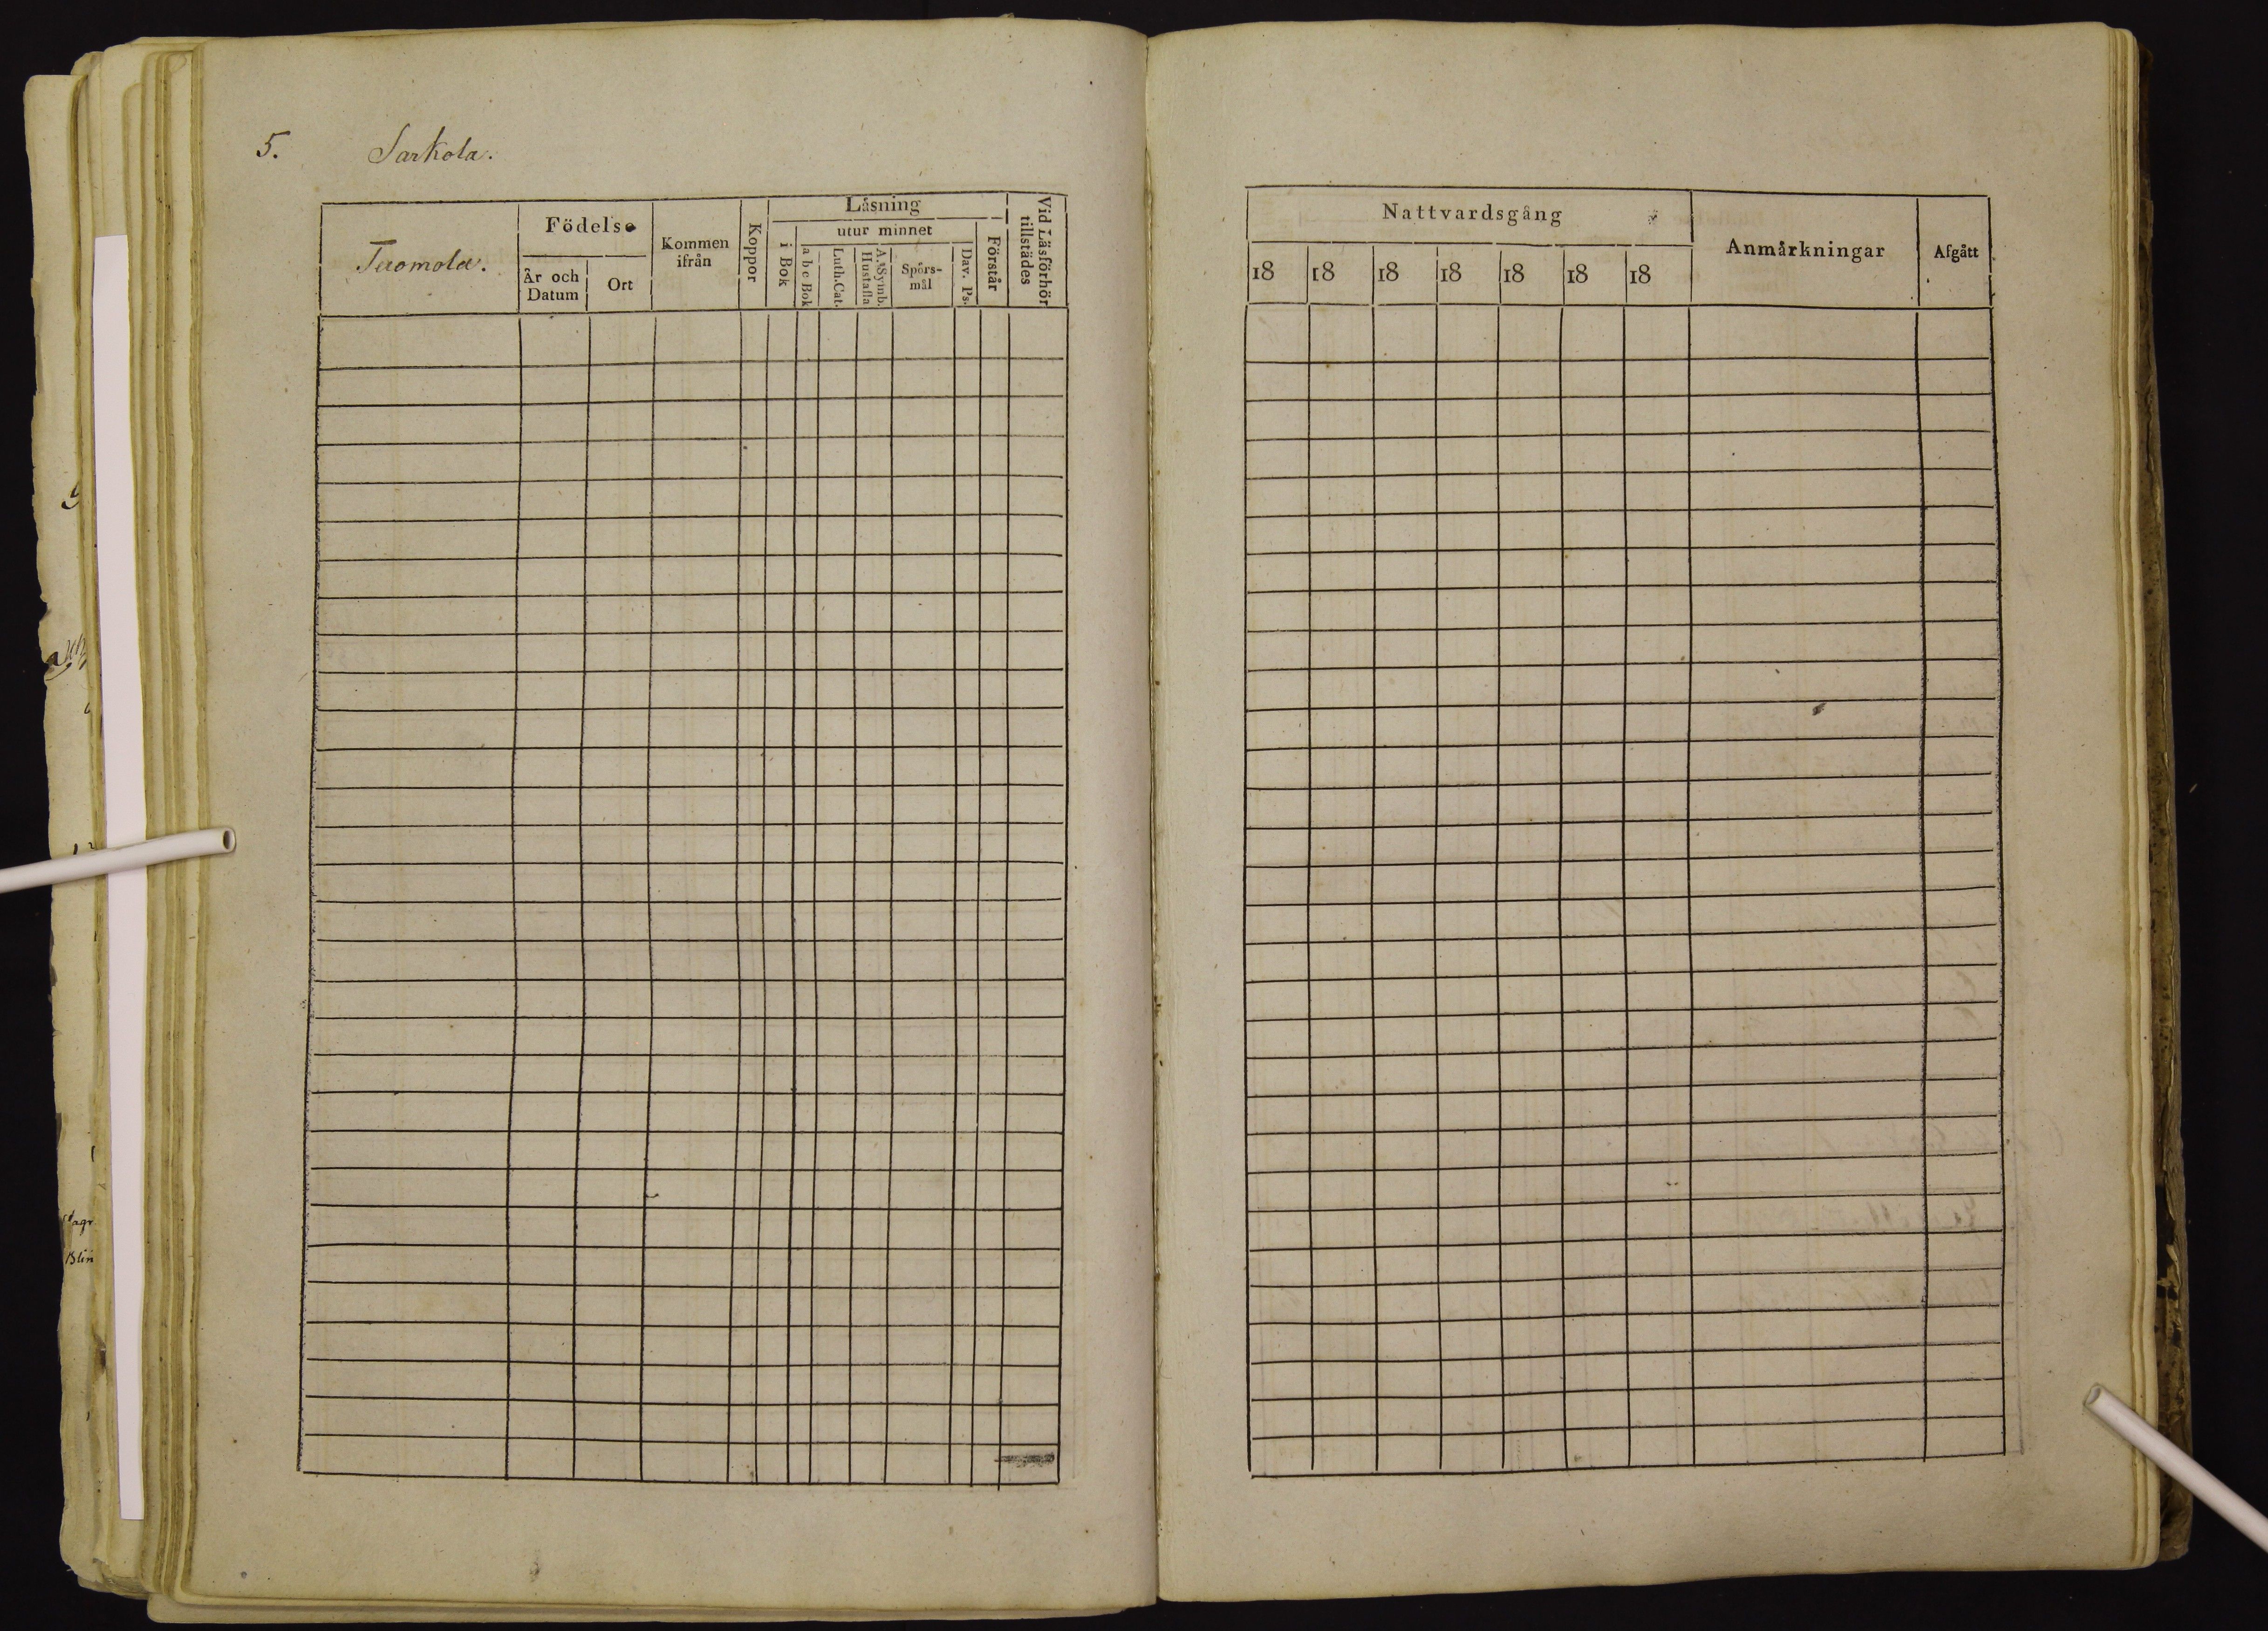 5. Sarkola.
Tuomola.
Födelse
År och
Datum
Ort
Kommen
ifrån
Koppor
Läsning
i Bok
utur minnet
a b c Bok
Luth. Cat.
A. Symb.
Hustafla
Spörs-
mål
Dav. Ps.
Förstår
Vid Läsförhör
tillstädes
Nattvardsgång
18 18 18 18 18 18 18
Anmärkningar
Afgått